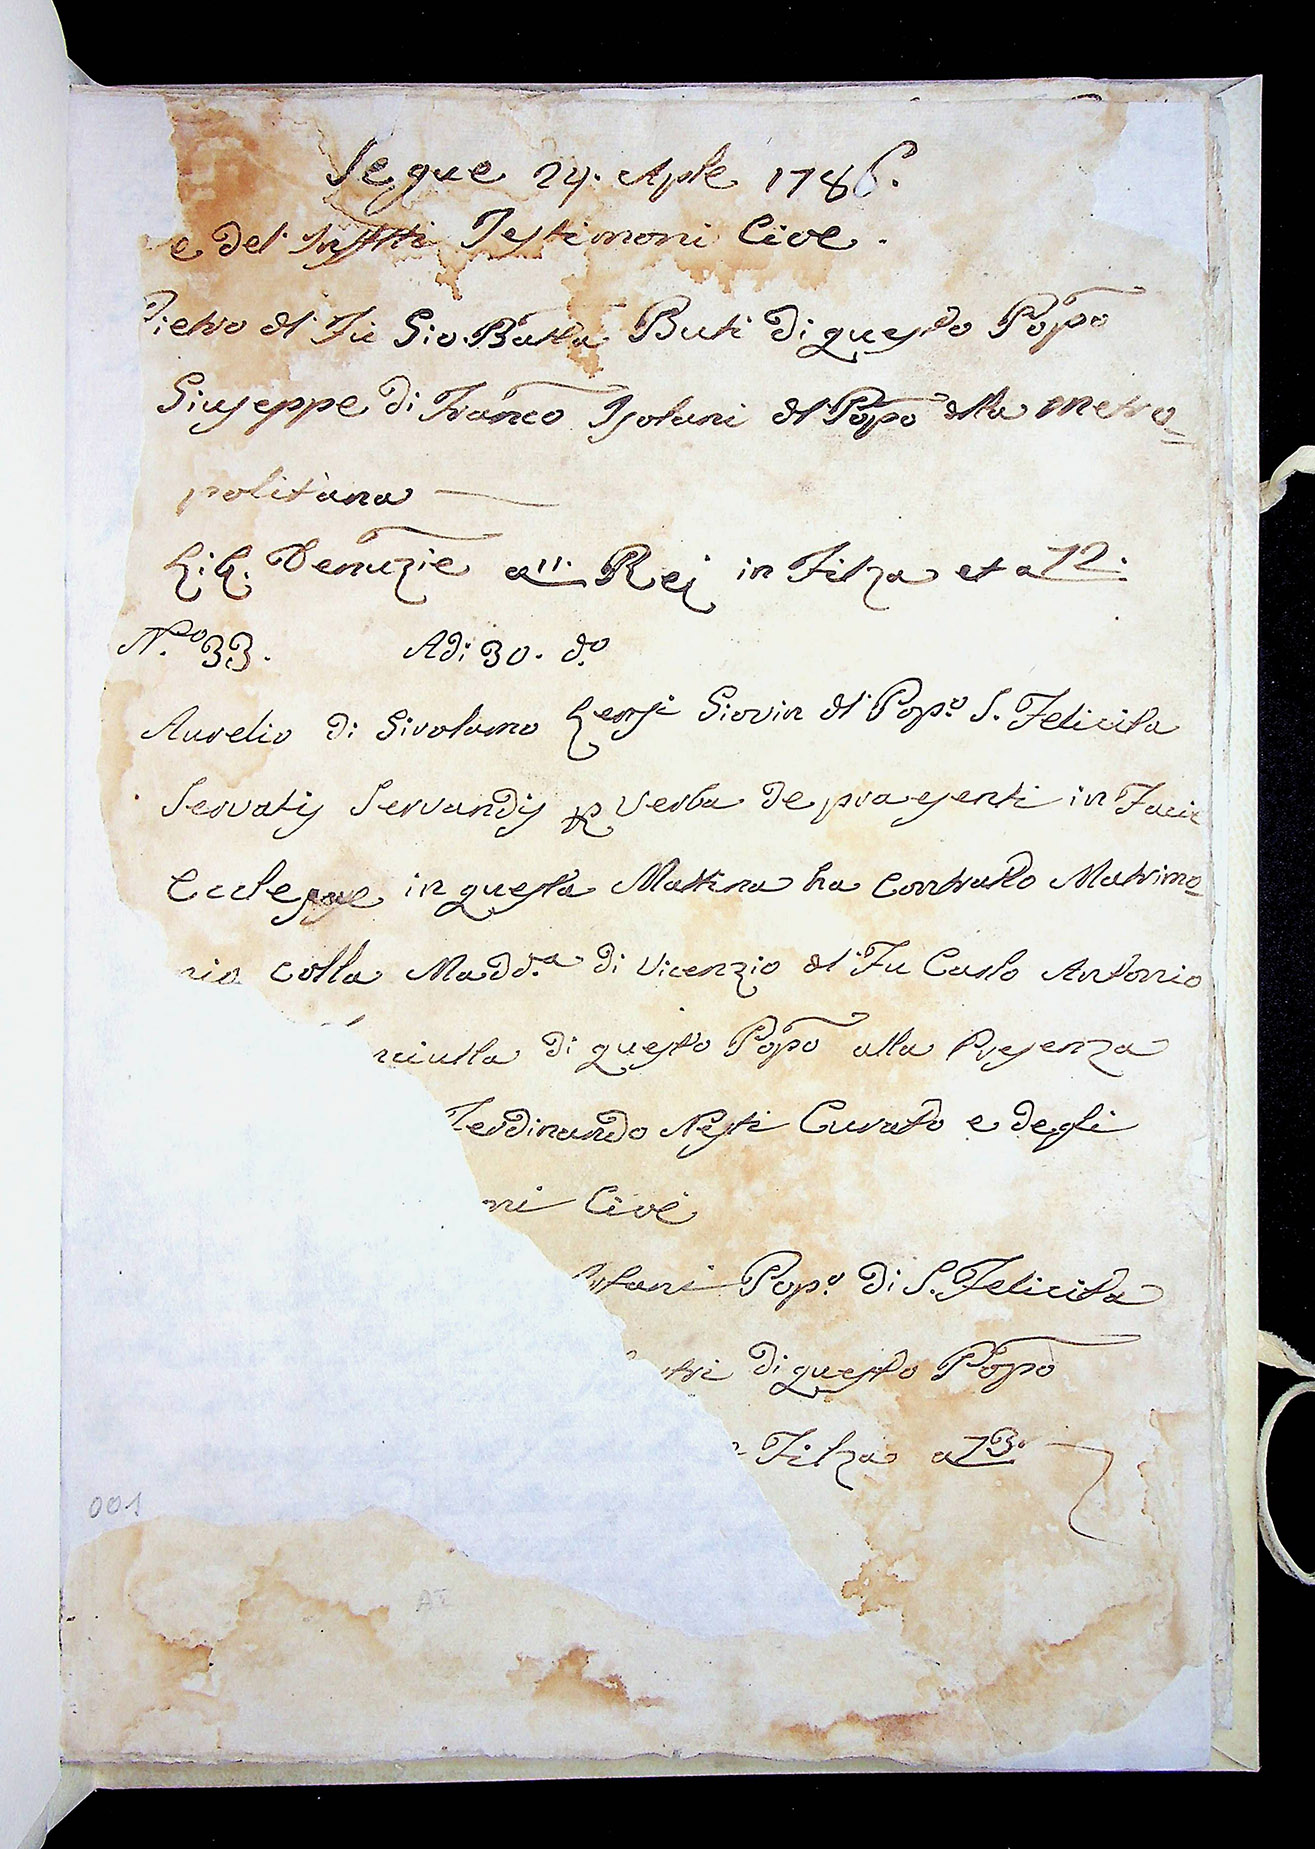 Segue 24. Aple 1786.
e del' Inftti Testimoni Cioe.
Pietro dl' Fu Gio. Batta Buti di questo Popo
Giuseppe di Franco Isolani dl' Popo dlla Metro-
politana
Denuzie a 11. Rej in Filza et a 72.
N.o 33. Adi 30. do
Aurelio di Girolamo Giovin dl' Pop.o S. Felicita
Servatis Servandis p Verba de praesenti in Facie
Eclesiae in questa Mattina ha Contratto Matrimo-
nio colla Madd.a di Vicenzio dl' Fu Carlo Antonio
nciulla di questo Popo alla Presenza
Ferdinando Nesti Curato e degli
ni Cioè
Pop.o di S. Felicita
di questo Popo
Filza a 73.
001